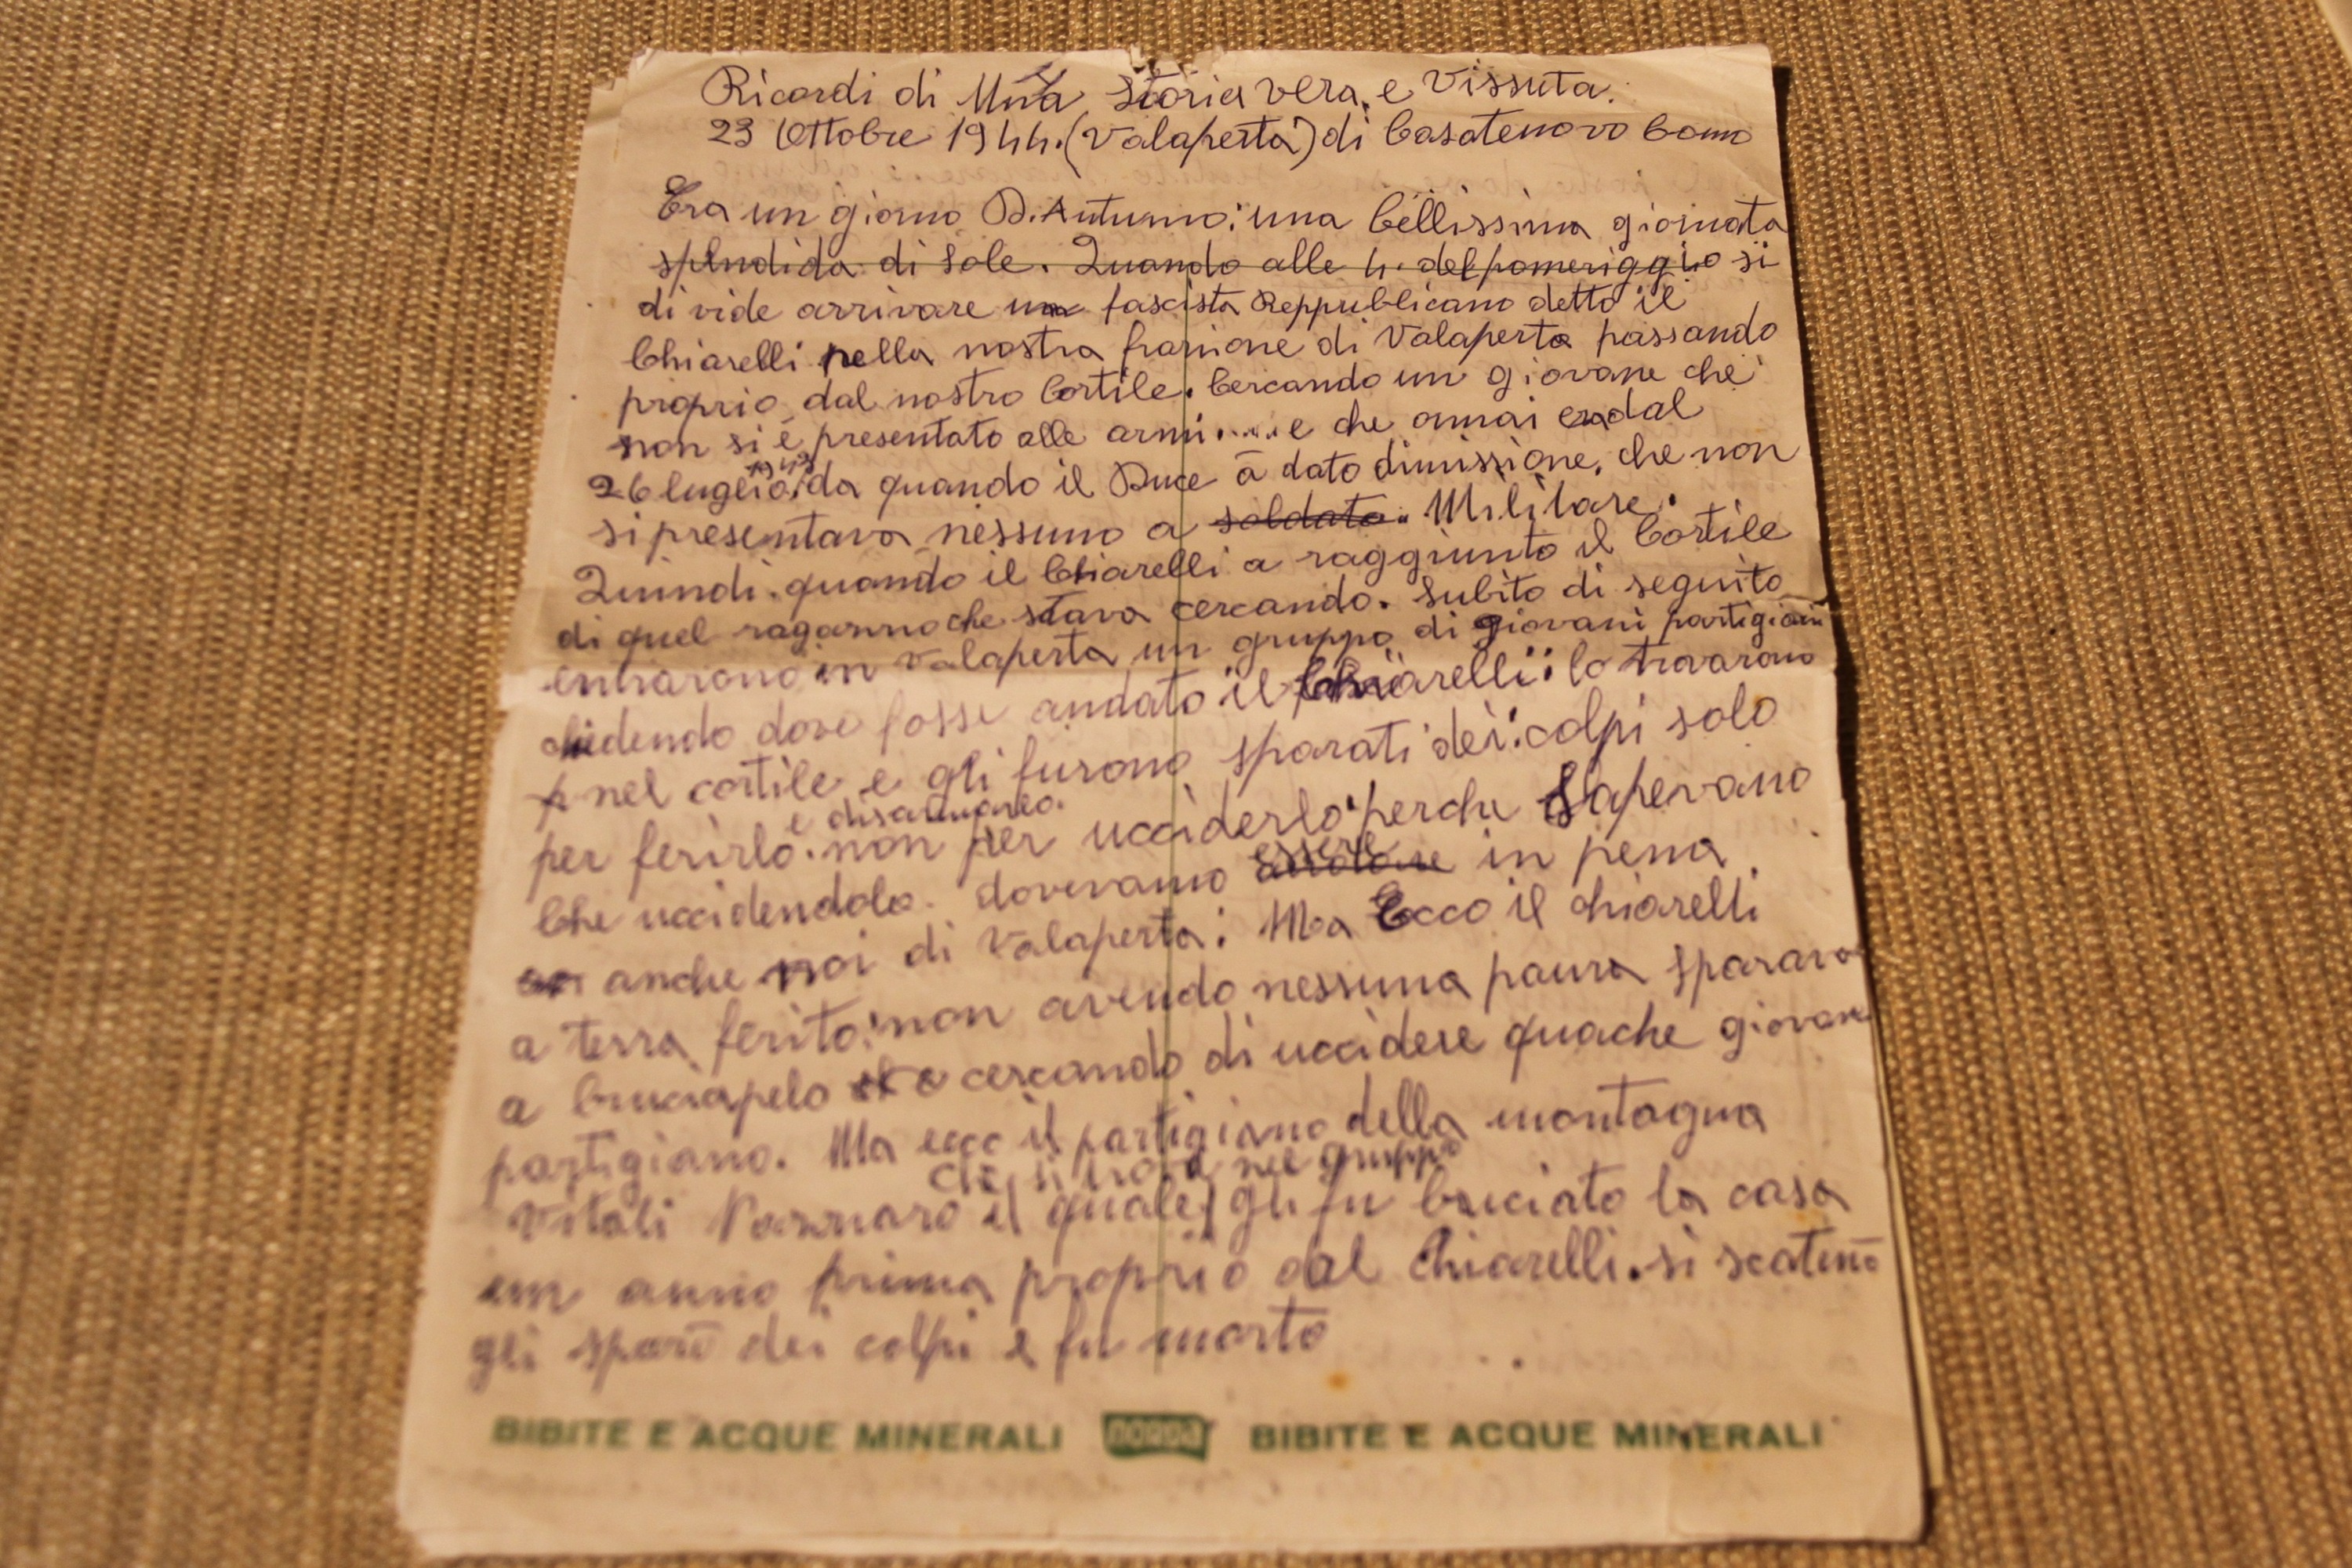 Ricordi di Una Storia vera, e Vissuta.
23 Ottobre 1944. (Valaperta) di Casatenovo Como
Era un giorno D'Autunno: una bellissima giornata
splendida di sole. Quando alle 4. del pomeriggio si
di vide arrivare un fascista Reppublicano detto il
Chiarelli nella nostra frazione di Valaperta passando
proprio dal nostro Cortile. Cercando un giovane che
non si è presentato alle armi.... e che ormai era dal
26 luglio 1943 da quando il Duce à dato dimissione, che non
si presentava nessuno a soldato. Militare.
Quindi. quando il Chiarelli a raggiunto il Cortile
di quel raganno che stava cercando. Subito di seguito
entrarono in Valaperta un gruppo di giovani partigiani
chidendo dove fosse andato il Chiarelli: lo trovarono
nel cortile e gli furono sparati dei colpi solo
per ferirlo e disarmarlo. non per ucciderlo perche Sapevano
Che uccidendolo. dovevamo essere in pena
anche noi di Valaperta: Ma Ecco il chiarelli
a terra ferito: non avendo nessuna paura sparava
a bruciapelo e cercando di uccidere quache giovane
partigiano. Ma ecco il partigiano della montagna
che si trova nel gruppo
Vitali il quale gli fu bruciato la casa
un anno prima proprio dal Chiarelli. si scatenò
gli sparò dei colpi e fu morto
BIBITE E ACQUE MINERALI norda BIBITE E ACQUE MINERALI